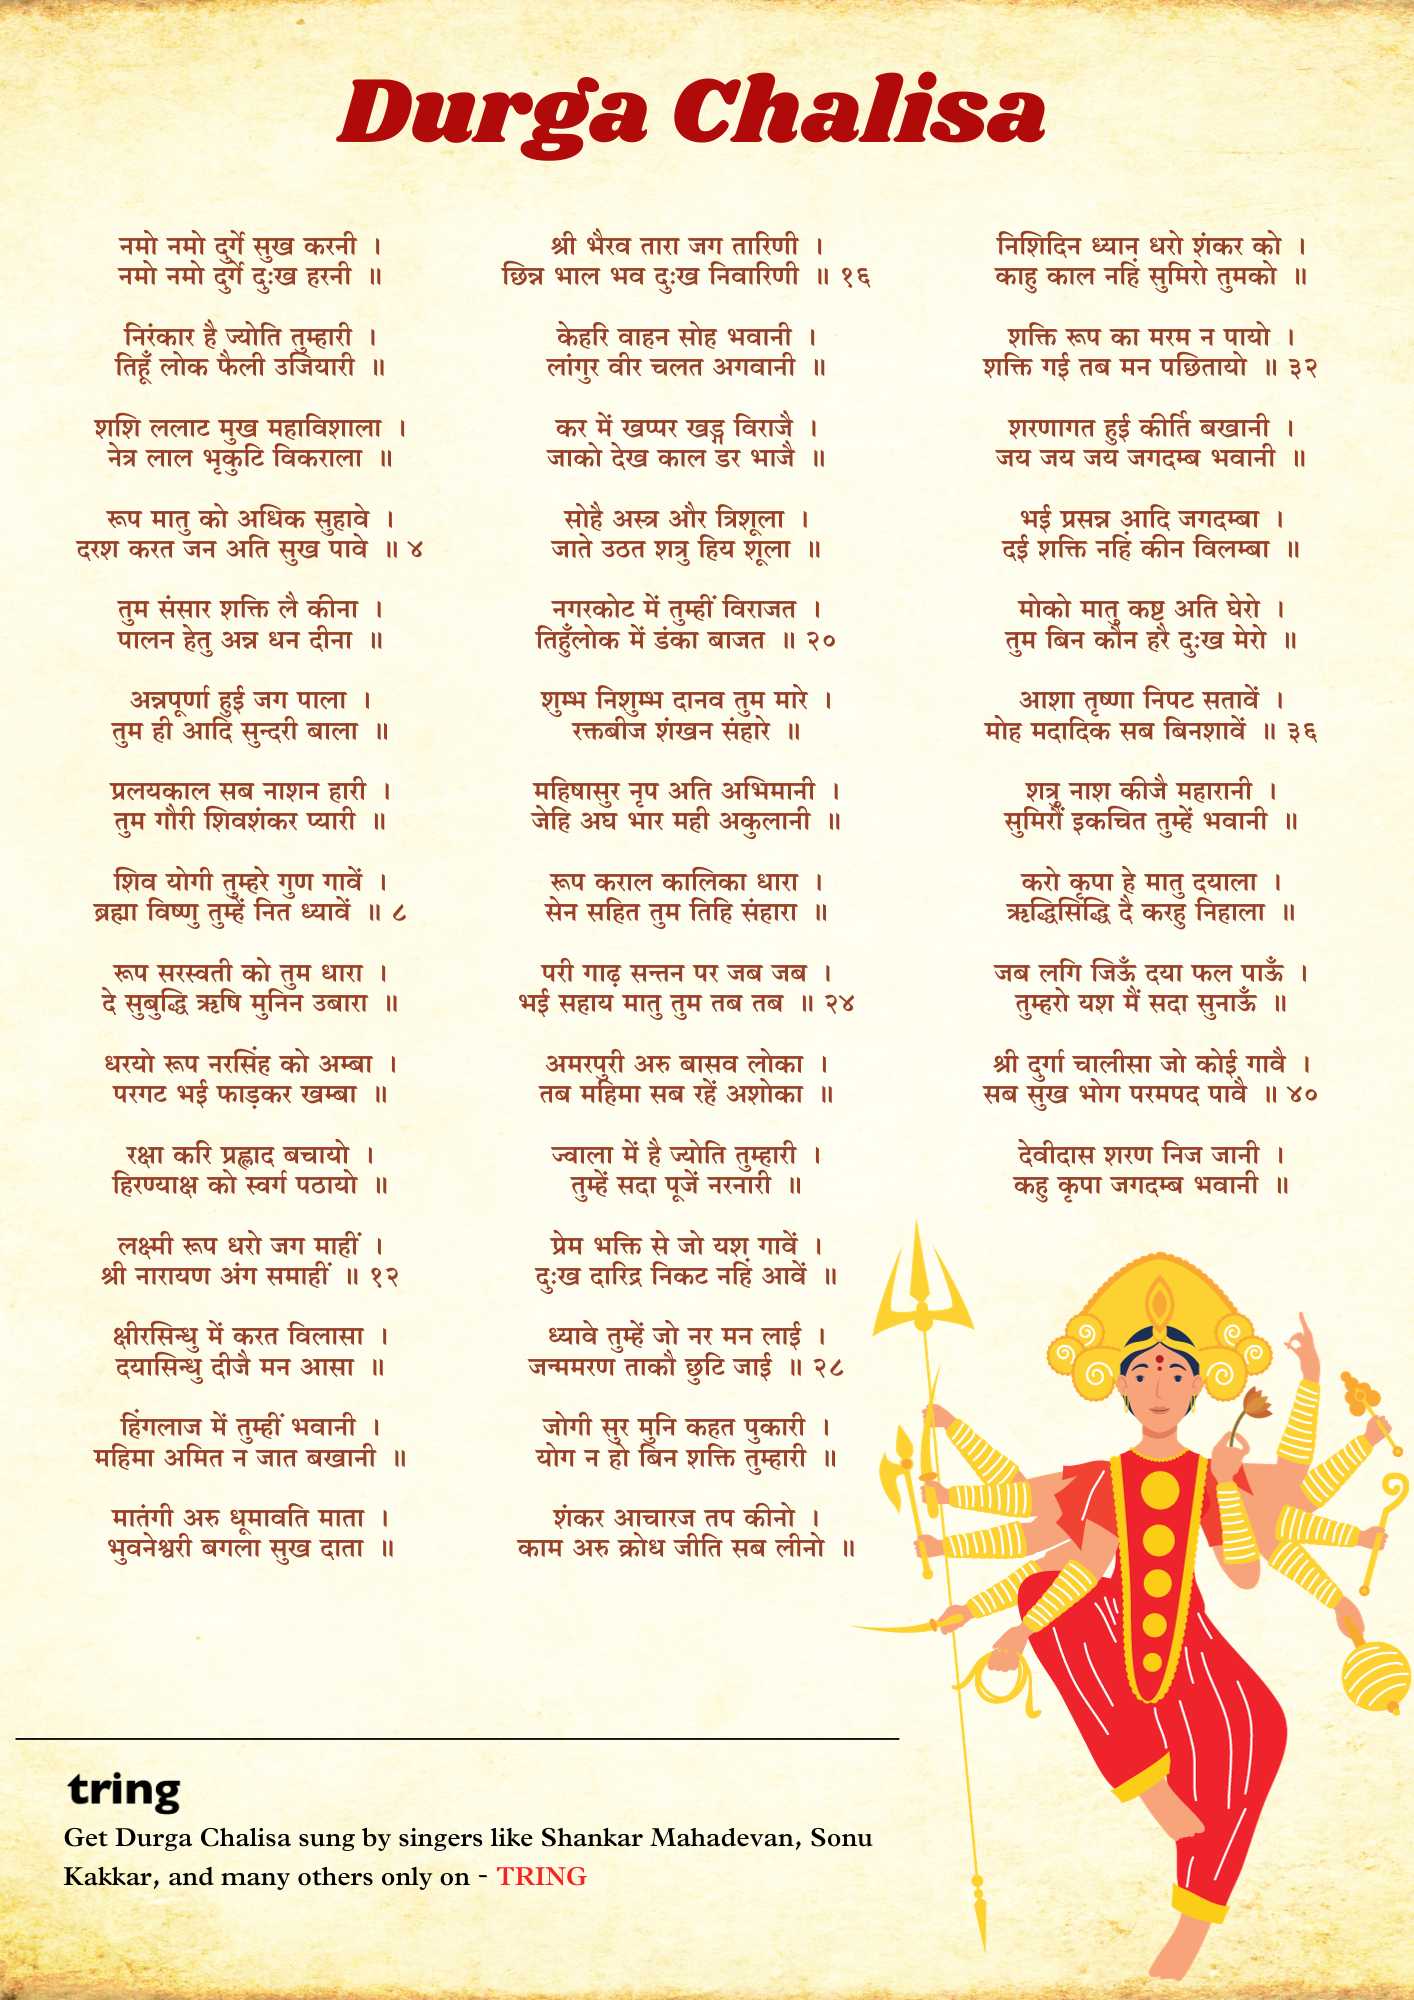 Durga Chalisa
नमो नमो दुर्गे सुख करनी ।
नमो नमो दुर्गे दुःख हरनी ॥
निरंकार है ज्योति तुम्हारी ।
तिहूँ लोक फैली उजियारी ॥
शशि ललाट मुख महाविशाला ।
नेत्र लाल भृकुटि विकराला ॥
रूप मातु को अधिक सुहावे ।
दरश करत जन अति सुख पावे ॥ ४
तुम संसार शक्ति लै कीना ।
पालन हेतु अन्न धन दीना ॥
अन्नपूर्णा हुई जग पाला ।
तुम ही आदि सुन्दरी बाला ॥
प्रलयकाल सब नाशन हारी ।
तुम गौरी शिवशंकर प्यारी ॥
शिव योगी तुम्हरे गुण गावें ।
ब्रह्मा विष्णु तुम्हें नित ध्यावें ॥ ८
रूप सरस्वती को तुम धारा ।
दे सुबुद्धि ऋषि मुनिन उबारा ॥
धरयो रूप नरसिंह को अम्बा ।
परगट भई फाड़कर खम्बा ॥
रक्षा करि प्रह्लाद बचायो ।
हिरण्याक्ष को स्वर्ग पठायो ॥
लक्ष्मी रूप धरो जग माहीं ।
श्री नारायण अंग समाहीं ॥ १२
क्षीरसिन्धु में करत विलासा ।
दयासिन्धु दीजै मन आसा ॥
हिंगलाज में तुम्हीं भवानी ।
महिमा अमित न जात बखानी ॥
मातंगी अरु धूमावति माता ।
भुवनेश्वरी बगला सुख दाता ॥
श्री भैरव तारा जग तारिणी ।
छिन्न भाल भव दुःख निवारिणी ॥ १६
केहरि वाहन सोह भवानी ।
लांगुर वीर चलत अगवानी ॥
कर में खप्पर खड्ग विराजै ।
जाको देख काल डर भाजै ॥
सोहै अस्त्र और त्रिशूला ।
जाते उठत शत्रु हिय शूला ॥
नगरकोट में तुम्हीं विराजत ।
तिहुँलोक में डंका बाजत ॥ २०
शुम्भ निशुम्भ दानव तुम मारे ।
रक्तबीज शंखन संहारे ॥
महिषासुर नृप अति अभिमानी ।
जेहि अघ भार मही अकुलानी ॥
रूप कराल कालिका धारा ।
सेन सहित तुम तिहि संहारा ॥
परी गाढ़ सन्तन पर जब जब ।
भई सहाय मातु तुम तब तब ॥ २४
अमरपुरी अरु बासव लोका ।
तब महिमा सब रहें अशोका ॥
ज्वाला में है ज्योति तुम्हारी ।
तुम्हें सदा पूजें नरनारी ॥
प्रेम भक्ति से जो यश गावें ।
दुःख दारिद्र निकट नहिं आवें ॥
ध्यावे तुम्हें जो नर मन लाई ।
जन्ममरण ताकौ छुटि जाई ॥ २८
जोगी सुर मुनि कहत पुकारी ।
योग न हो बिन शक्ति तुम्हारी ॥
शंकर आचारज तप कीनो ।
काम अरु क्रोध जीति सब लीनो ॥
निशिदिन ध्यान धरो शंकर को ।
काहु काल नहिं सुमिरो तुमको ॥
शक्ति रूप का मरम न पायो ।
शक्ति गई तब मन पछितायो ॥ ३२
शरणागत हुई कीर्ति बखानी ।
जय जय जय जगदम्ब भवानी ॥
भई प्रसन्न आदि जगदम्बा ।
दई शक्ति नहिं कीन विलम्बा ॥
मोको मातु कष्ट अति घेरो ।
तुम बिन कौन हरै दुःख मेरो ॥
आशा तृष्णा निपट सतावें ।
मोह मदादिक सब बिनशावें ॥ ३६
शत्रु नाश कीजै महारानी ।
सुमिरौं इकचित तुम्हें भवानी ॥
करो कृपा हे मातु दयाला ।
ऋद्धिसिद्धि दै करहु निहाला ॥
जब लगि जिऊँ दया फल पाऊँ ।
तुम्हरो यश मैं सदा सुनाऊँ ॥
श्री दुर्गा चालीसा जो कोई गावै ।
सब सुख भोग परमपद पावै ॥ ४०
देवीदास शरण निज जानी ।
कहु कृपा जगदम्ब भवानी ॥
tring
Get Durga Chalisa sung by singers like Shankar Mahadevan, Sonu
Kakkar, and many others only on - TRING